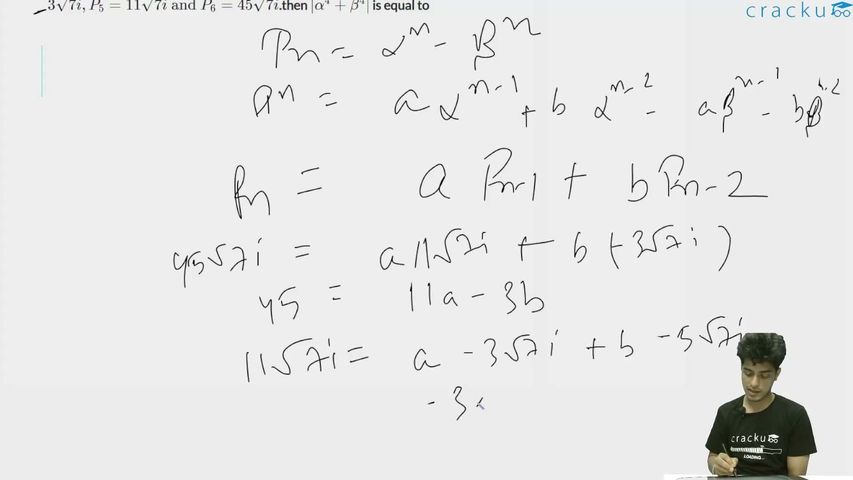 cracku
3√7i, P₅ = 11√7i and P₆ = 45√7i.then |α⁴ + β⁴| is equal to
Pn = αⁿ - βⁿ
aⁿ = a αⁿ⁻¹ + b αⁿ⁻² - aβⁿ⁻¹ - bβⁿ⁻²
Pn = a Pn-1 + b Pn-2
45√7i = a 11√7i + b (-3√7i)
45 = 11a - 3b
11√7i = a -3√7i + b -5√7i
-3
cracku
LOADING...